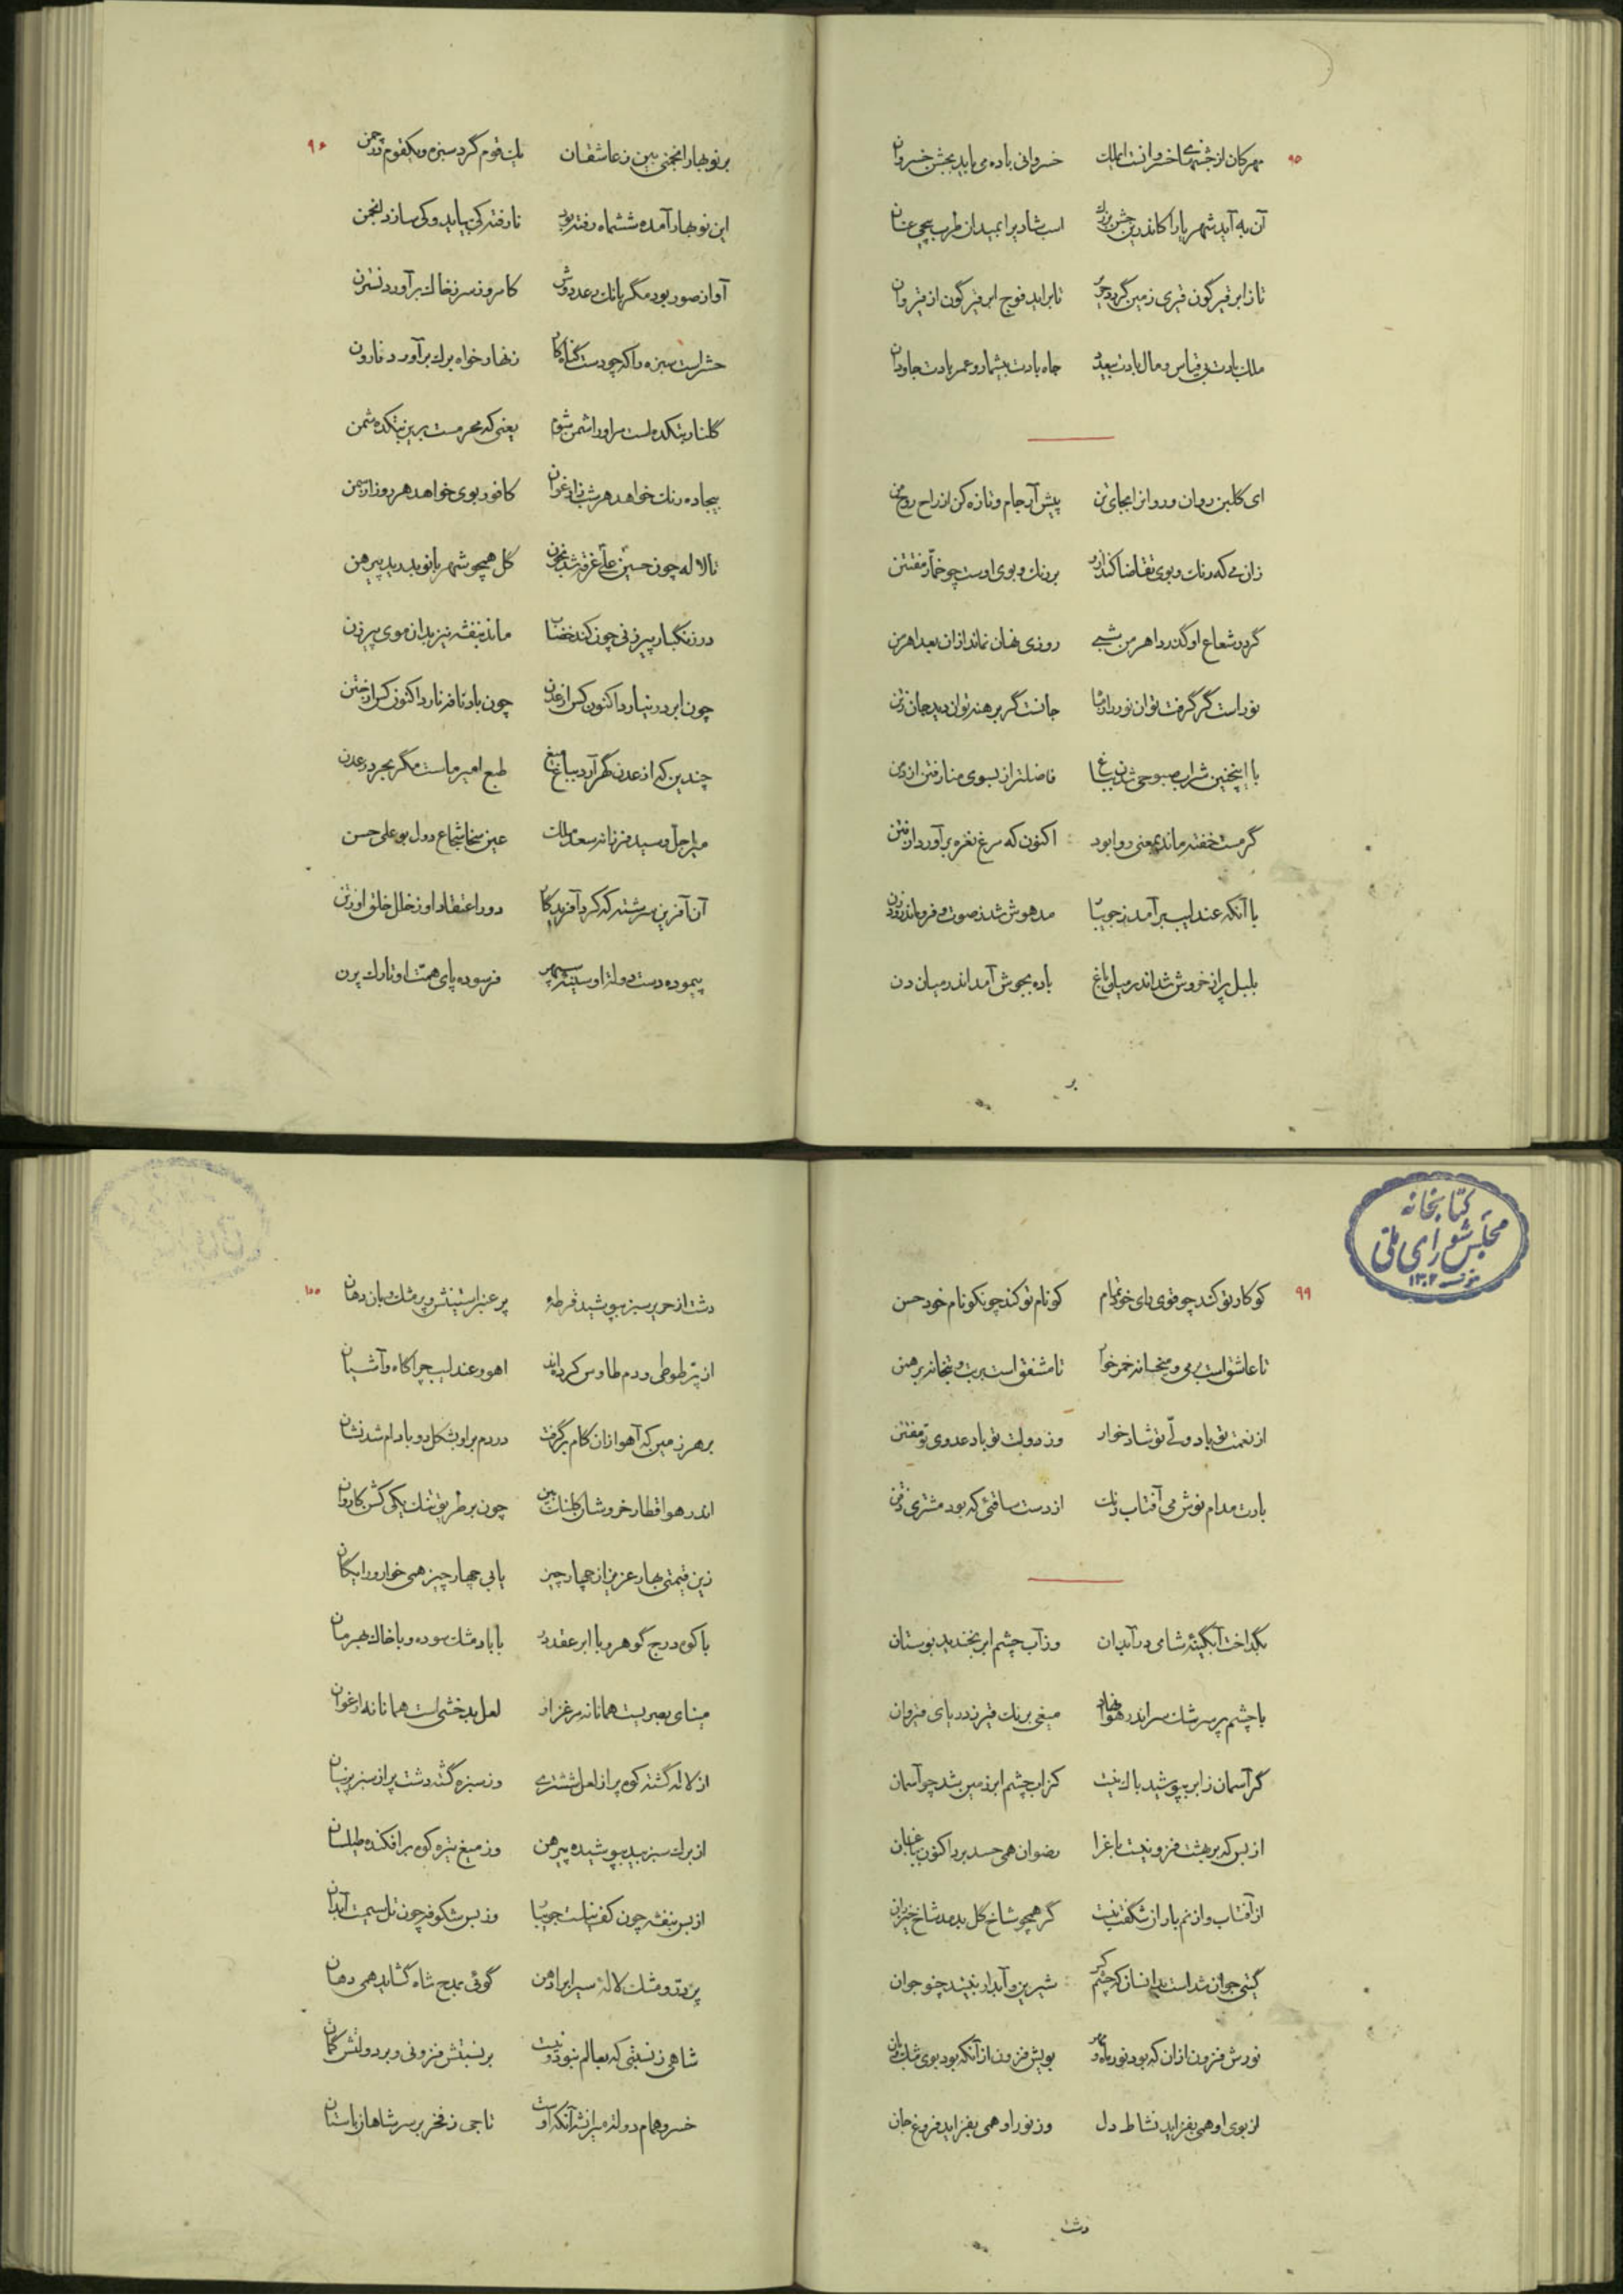 ۹۵
مهرکان از جشنهای خسروانست ای ملک خسروانی باده می باید بجشن خسروان
آن به آید شهریارا کاندرین جشن بزرک اسب شادی را بمیدان طرب پیچی عنان
تا ز ابر قیرگون قیری زمین گردد چو تا براید فوج ابر قیرگون از قیروان
ملک بادت بی قیاس و مال بادت بیعدد جاه بادت بیشمار و عمر بادت جاودان
ای گلبن روان و روانرا بجای تن پیش آر جام و تازه کن از راح روح من
زان می که رنک و بوی تقاضا کند ازو بر رنک و بوی اوست چو خمار مفتتن
گر در شعاع او گذرد اهرمن شبی روزی نهان نماند ازان بعد اهرمن
نور است گر گرفت توان نور را جانست گر برهنه توان دید جان ز تن
با اینچنین شراب صبوحی شدن بباغ فاضلتر از بسوی منا رفتن از
گر مست خفته ماند یعنی روا بود اکنون که مرغ نعره برآورد از فتن
با آنکه عندلیب برآمد ز جویبار مدهوش شد ز صوت و فرو ماند
بلبل پر از خروش شد اندر میان باغ باده بجوش آمد اندر میان دن
بر
۹۶
بر نوبهار انجمنی بین ز عاشقان یک قوم گرد سبزه و یک قوم در چمن
این نوبهار آمده ششماه رفته بود تا رفته کی بیاید و کی سازد انجمن
آواز صور بود مگر بانک رعد دوش کامروز سر ز خاک برآورد نسترن
حشر است سبزه را که چو دست گناه کار زنهار خواه برک برآورد نارون
گلنار بتکده است مر او را شمن یعنی که محرمست برین بتکده شمن
بیجاده رنک خواهد هر شب ز ارغوان کافور بوی خواهد هر روز از سمن
تا لاله چون حسین علی غرقه شد بخون گل همچو شهربانو بدرید پیرهن
در زنگبار پیرزنی چون کند خضاب ماند بنفشه نیز بدان موی پیرزن
چون ابر در نیارد اکنون کس از عدن چون باد نافه نارد اکنون کس از ختن
چندین که از عدن گهر آرد بباغ میغ طبع امیر ماست مگر بحر در عدن
میر اجل و سید فرزانه سعد ملک عین سخا شجاع دول بوعلی حسن
آن آفرین سرشته که کرد آفریدگار دور اعتقاد او ز خلل خلق او ز
پیموده دست دولت او سینه سپهر فرسوده پای همت او تارک پرن
کتابخانه
مجلس شورای ملی
۱۳۰۲
۹۹
کو کار تو کند چو قوی رای خود تمام کو نام تو کند چو نکو نام خود حسن
تا عاشق است بر می و میخانه خمرخوار تا مشفق است بر بت و بتخانه برهمن
از نعمت تو باد ولی تو شادخوار وز دولت تو باد عدوی تو مفتتن
بادت مدام نوش می آفتاب رنک از دست ساقئی که بود مشتری ذقن
بگداخت آبگینهٔ شامی در آبدان وز آب چشم ابر بخندید بوستان
با چشم پر سرشک سر اندر هوا نهاد میغی برنک قیر ز دریای قیروان
گر آسمان ز ابر بپوشید باک نیست کز اب چشم ابر زمین شد چو آسمان
از بس که بر بهشت فزونیست باغ را رضوان همی حسد برد اکنون بباغبان
از آفتاب و از نم باران شگفت نیست گر همچو شاخ گل بدمد شاخ خیزران
گیتی جوان شد است بدانسان که چشم کس شیرین و آبدار نبیند چنو جوان
نورش فزون ازان که بود نور ماه و مهر بویش فزون از آنکه بود بوی مشک و بان
از بوی او همی بفزاید نشاط دل وز نور او همی بفزاید فروغ جان
دشت
۱۰۰
دشت از حریر سبز بپوشید قرطهٔ پر عنبر استینش و پر مشک بادبان
از پر طوطی و دم طاوس کرده اند اهو و عندلیب چراگاه و آشیان
بر هر زمین که آهو ازان کام برگرفت در دم براو بشکل دو بادام شد نشان
اندر هوا قطار خروشان کلنک بین چون بر طریق تنک یکی گشن کاروان
زین قیمتی بهار عزیز از چهار چیز یابی چهار چیز همی خوار و رایگان
با کوه درج گوهر و با ابر عقد در با باد مشک سوده و با خاک بهرمان
مینای بصریست همانا نه مرغزار لعل بدخشی است همانا نه ارغوان
از لاله گشته کوه پر از لعل ششتری وز سبزه گشته دشت پر از سبز پرنیان
از برک سبز بید بپوشیده پیرهن وز میغ تیره کوه برافکنده طیلسان
از بس بنفشه چون کف نیلست جویبار وز بس شکوفه چون تل سیمست آبدان
پر در و مشک لالهٔ سیراب را دهن گوئی بمدح شاه گشاید همی دهان
شاهی ز نسبتی که بعالم نبود و نیست بر نسبتش فزونی و بر دولتش کمان
خسرو همام دولت میرانشه آنکه اوست تاجی ز فخر بر سر شاهان باستان